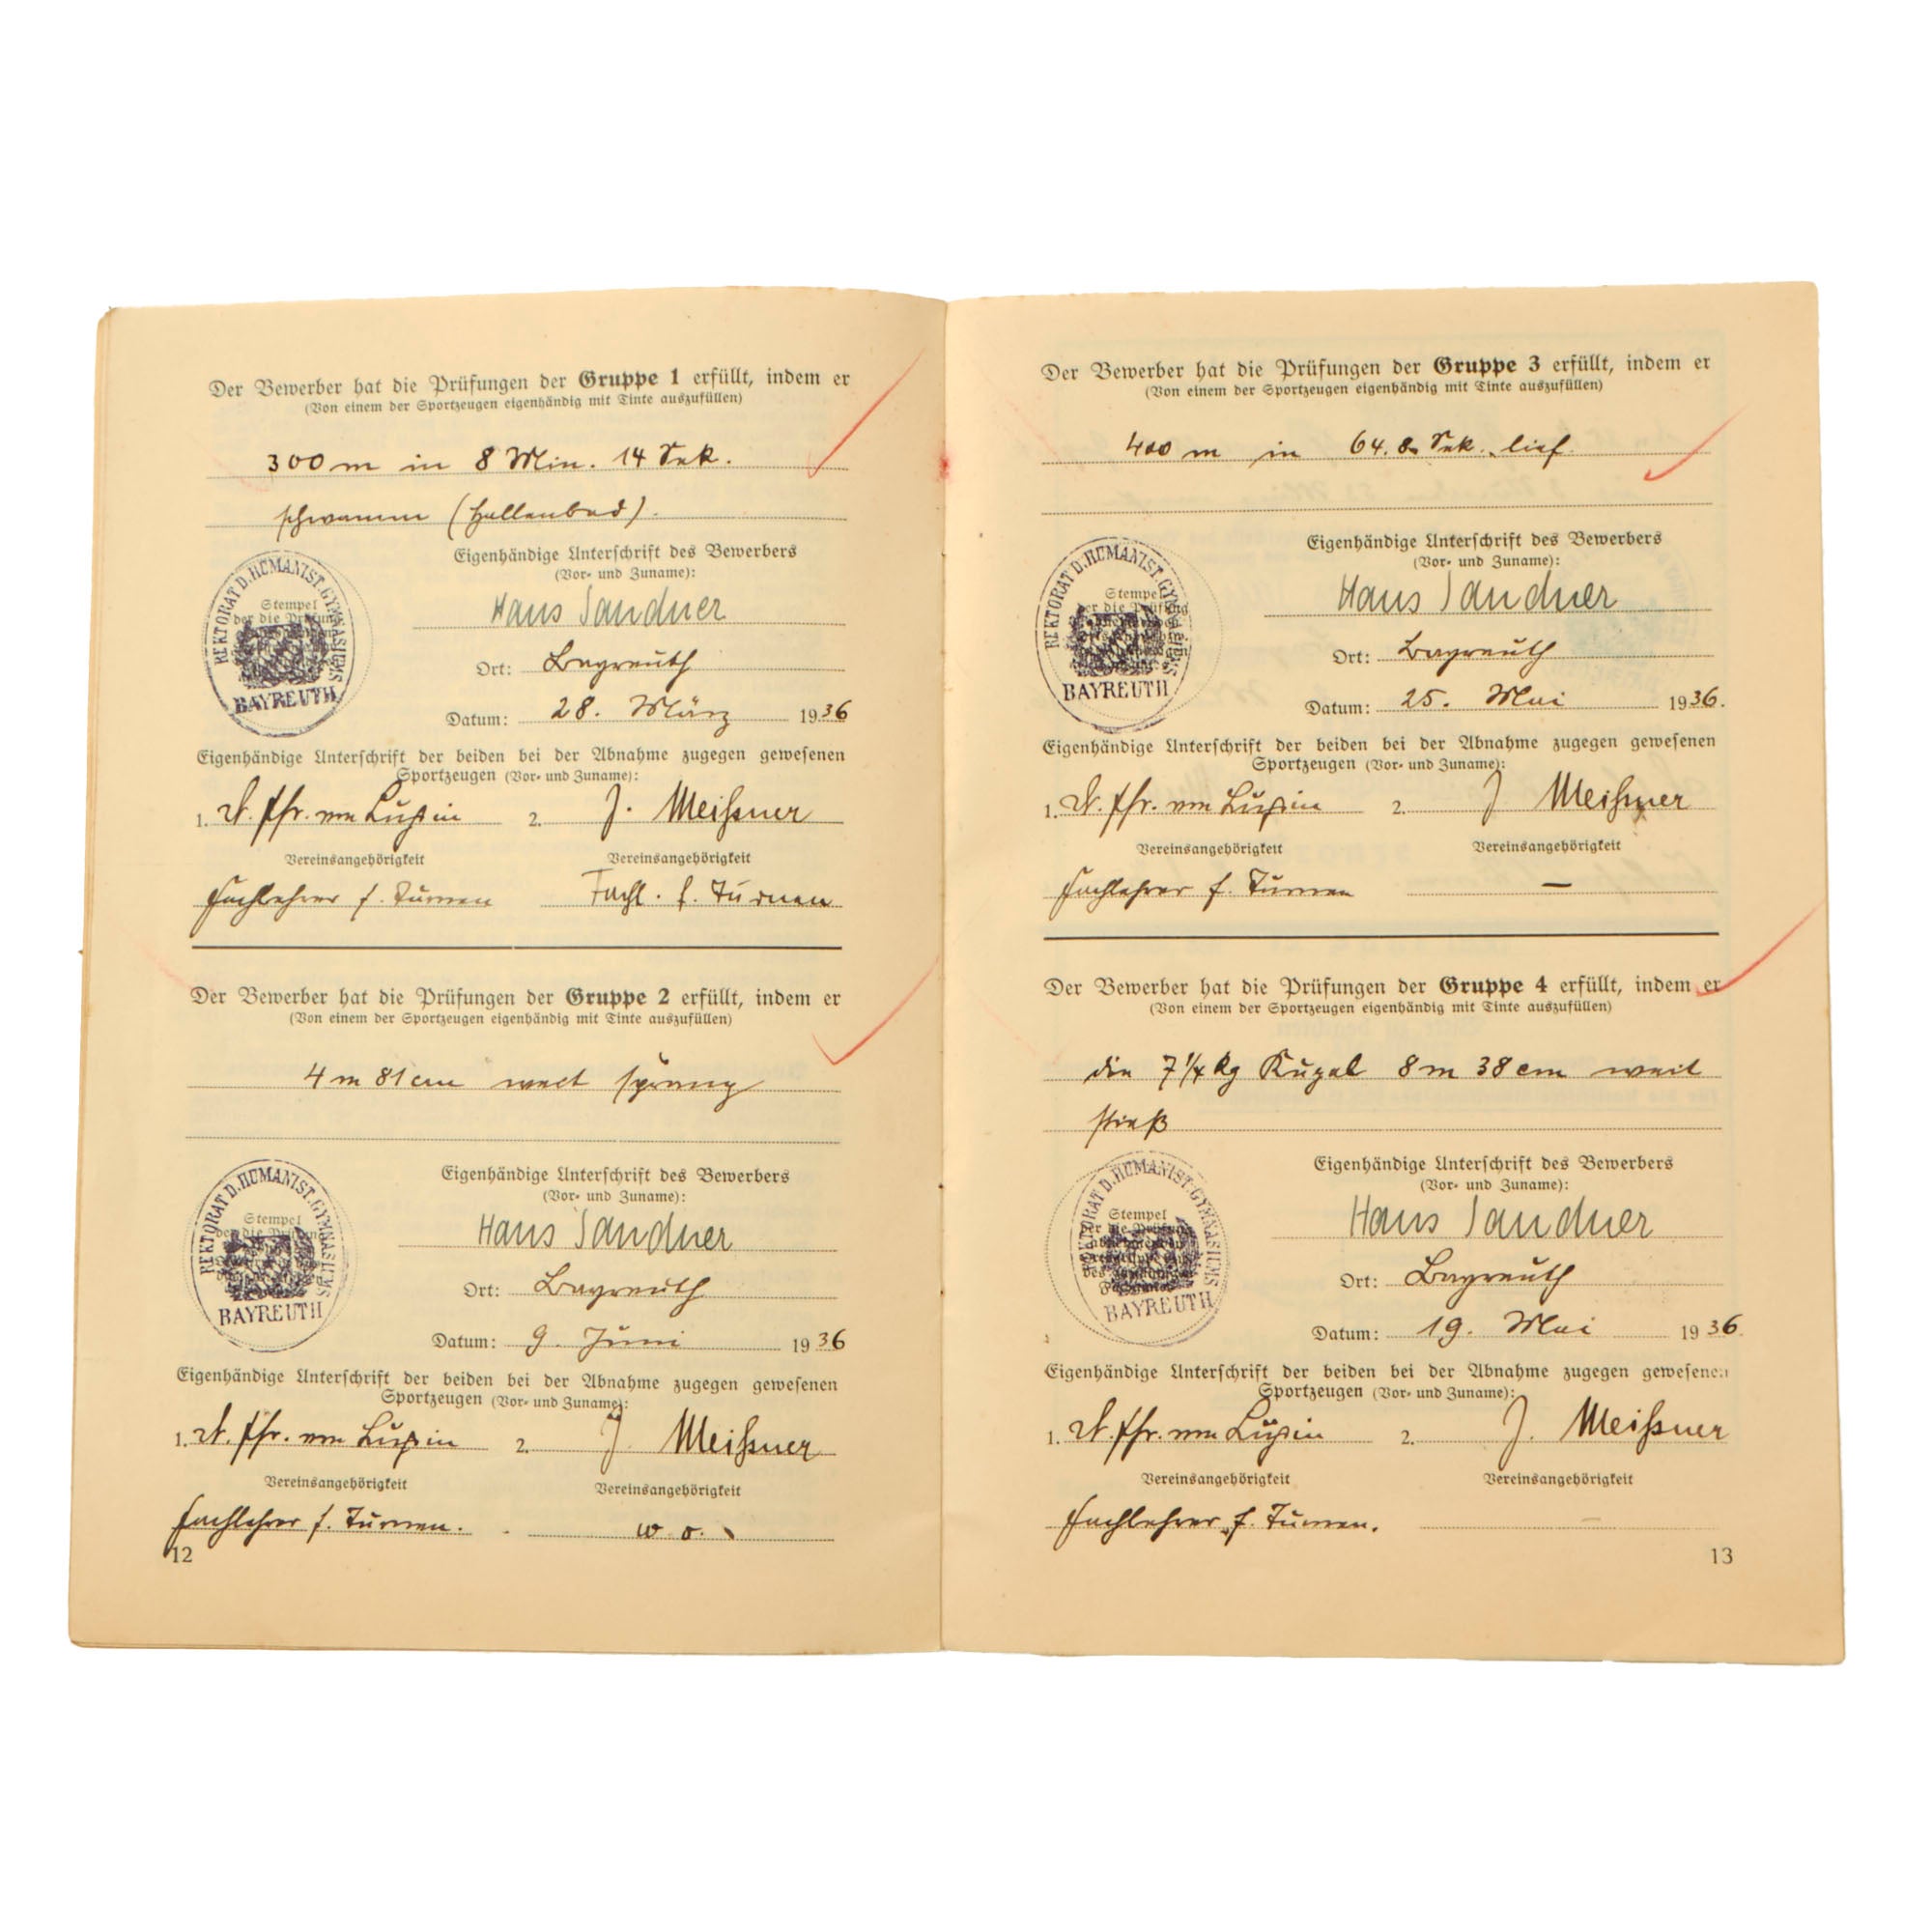 Der Bewerber hat die Prüfungen der Gruppe 1 erfüllt, indem er
(Von einem der Sportzeugen eigenhändig mit Tinte auszufüllen)
300 m in 8 Min. 14 Sek.
schwamm (Hallenbad).
REKTORAT D. HUMANIST. GYMNASIUMS
BAYREUTH
Stempel
der die Prüfung
Eigenhändige Unterschrift des Bewerbers
(Vor- und Zuname):
Hans Sandner
Ort: Bayreuth
Datum: 28. März 1936
Eigenhändige Unterschrift der beiden bei der Abnahme zugegen gewesenen
Sportzeugen (Vor- und Zuname):
1. N. Frhr. von Lupin 2. J. Meißner
Vereinsangehörigkeit Vereinsangehörigkeit
Fachlehrer f. Turnen Fachl. f. Turnen
Der Bewerber hat die Prüfungen der Gruppe 2 erfüllt, indem er
(Von einem der Sportzeugen eigenhändig mit Tinte auszufüllen)
4 m 81 cm weit sprang
REKTORAT D. HUMANIST. GYMNASIUMS
BAYREUTH
Stempel
der die Prüfung
Eigenhändige Unterschrift des Bewerbers
(Vor- und Zuname):
Hans Sandner
Ort: Bayreuth
Datum: 9. Juni 1936
Eigenhändige Unterschrift der beiden bei der Abnahme zugegen gewesenen
Sportzeugen (Vor- und Zuname):
1. N. Frhr. von Lupin 2. J. Meißner
Vereinsangehörigkeit Vereinsangehörigkeit
Fachlehrer f. Turnen. w. o.
12
Der Bewerber hat die Prüfungen der Gruppe 3 erfüllt, indem er
(Von einem der Sportzeugen eigenhändig mit Tinte auszufüllen)
400 m in 64.8 Sek. lief.
REKTORAT D. HUMANIST. GYMNASIUMS
BAYREUTH
Stempel
der die Prüfung
Eigenhändige Unterschrift des Bewerbers
(Vor- und Zuname):
Hans Sandner
Ort: Bayreuth
Datum: 25. Mai 1936.
Eigenhändige Unterschrift der beiden bei der Abnahme zugegen gewesenen
Sportzeugen (Vor- und Zuname):
1. N. Frhr. von Lupin 2. J Meißner
Vereinsangehörigkeit Vereinsangehörigkeit
Fachlehrer f. Turnen —
Der Bewerber hat die Prüfungen der Gruppe 4 erfüllt, indem er
(Von einem der Sportzeugen eigenhändig mit Tinte auszufüllen)
die 7 1/4 kg Kugel 8 m 38 cm weit
stieß
REKTORAT D. HUMANIST. GYMNASIUMS
BAYREUTH
Stempel
der die Prüfung
Eigenhändige Unterschrift des Bewerbers
(Vor- und Zuname):
Hans Sandner
Ort: Bayreuth
Datum: 19. Mai 1936.
Eigenhändige Unterschrift der beiden bei der Abnahme zugegen gewesenen
Sportzeugen (Vor- und Zuname):
1. N. Frhr. von Lupin 2. J. Meißner
Vereinsangehörigkeit Vereinsangehörigkeit
Fachlehrer f. Turnen. —
13